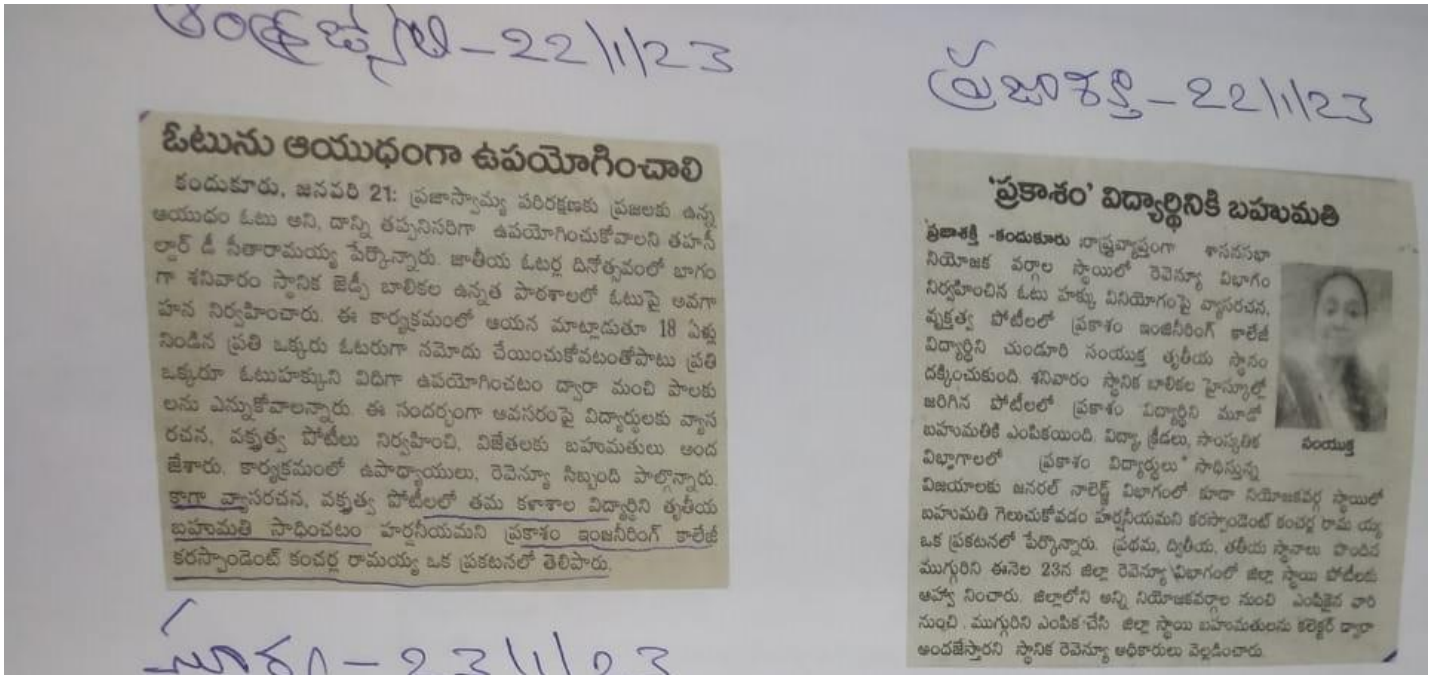 ఆంధ్రజ్యోతి - 22/1/23
ఓటును ఆయుధంగా ఉపయోగించాలి
కందుకూరు, జనవరి 21: ప్రజాస్వామ్య పరిరక్షణకు ప్రజలకు ఉన్న
ఆయుధం ఓటు అని, దాన్ని తప్పనిసరిగా ఉపయోగించుకోవాలని తహసీ
ల్దార్ డీ సీతారామయ్య పేర్కొన్నారు. జాతీయ ఓటర్ల దినోత్సవంలో భాగం
గా శనివారం స్థానిక జెడ్పీ బాలికల ఉన్నత పాఠశాలలో ఓటుపై అవగా
హన నిర్వహించారు. ఈ కార్యక్రమంలో ఆయన మాట్లాడుతూ 18 ఏళ్లు
నిండిన ప్రతి ఒక్కరు ఓటరుగా నమోదు చేయించుకోవటంతోపాటు ప్రతి
ఒక్కరూ ఓటుహక్కుని విధిగా ఉపయోగించటం ద్వారా మంచి పాలకు
లను ఎన్నుకోవాలన్నారు. ఈ సందర్భంగా అవసరంపై విద్యార్థులకు వ్యాస
రచన, వక్తృత్వ పోటీలు నిర్వహించి, విజేతలకు బహుమతులు అంద
జేశారు. కార్యక్రమంలో ఉపాధ్యాయులు, రెవెన్యూ సిబ్బంది పాల్గొన్నారు.
కాగా వ్యాసరచన, వక్తృత్వ పోటీలలో తమ కళాశాల విద్యార్థిని తృతీయ
బహుమతి సాధించటం హర్షనీయమని ప్రకాశం ఇంజనీరింగ్ కాలేజీ
కరస్పాండెంట్ కంచర్ల రామయ్య ఒక ప్రకటనలో తెలిపారు.
ప్రజాశక్తి - 22/1/23
'ప్రకాశం' విద్యార్థినికి బహుమతి
'ప్రజాశక్తి -కందుకూరు :రాష్ట్రవ్యాప్తంగా శాసనసభా
నియోజక వర్గాల స్థాయిలో రెవెన్యూ విభాగం
నిర్వహించిన ఓటు హక్కు వినియోగంపై వ్యాసరచన,
వృక్తత్వ పోటీలలో ప్రకాశం ఇంజినీరింగ్ కాలేజీ
విద్యార్థిని చుండూరి సంయుక్త తృతీయ స్థానం
దక్కించుకుంది. శనివారం స్థానిక బాలికల హైస్కూల్లో
జరిగిన పోటీలలో ప్రకాశం విద్యార్థిని మూడో
బహుమతికి ఎంపికయింది. విద్యా, క్రీడలు, సాంస్కృతిక
విభాగాలలో ప్రకాశం విద్యార్థులు సాధిస్తున్న
సంయుక్త
విజయాలకు జనరల్ నాలెడ్జ్ విభాగంలో కూడా నియోజకవర్గ స్థాయిలో
బహుమతి గెలుచుకోవడం హర్షనీయమని కరస్పాండెంట్ కంచర్ల రామ య్య
ఒక ప్రకటనలో పేర్కొన్నారు. ప్రథమ, ద్వితీయ, తతీయ స్థానాలు పొందిన
ముగ్గురిని ఈనెల 23న జిల్లా రెవెన్యూ విభాగంలో జిల్లా స్థాయి పోటీలకు
ఆహ్వా నించారు. జిల్లాలోని అన్ని నియోజకవర్గాల నుంచి ఎంపికైన వారి
నుంచి ముగ్గురిని ఎంపిక చేసి జిల్లా స్థాయి బహుమతులను కలెక్టర్ ద్వారా
అందజేస్తారని స్థానిక రెవెన్యూ అధికారులు వెల్లడించారు.
- 23/1/23